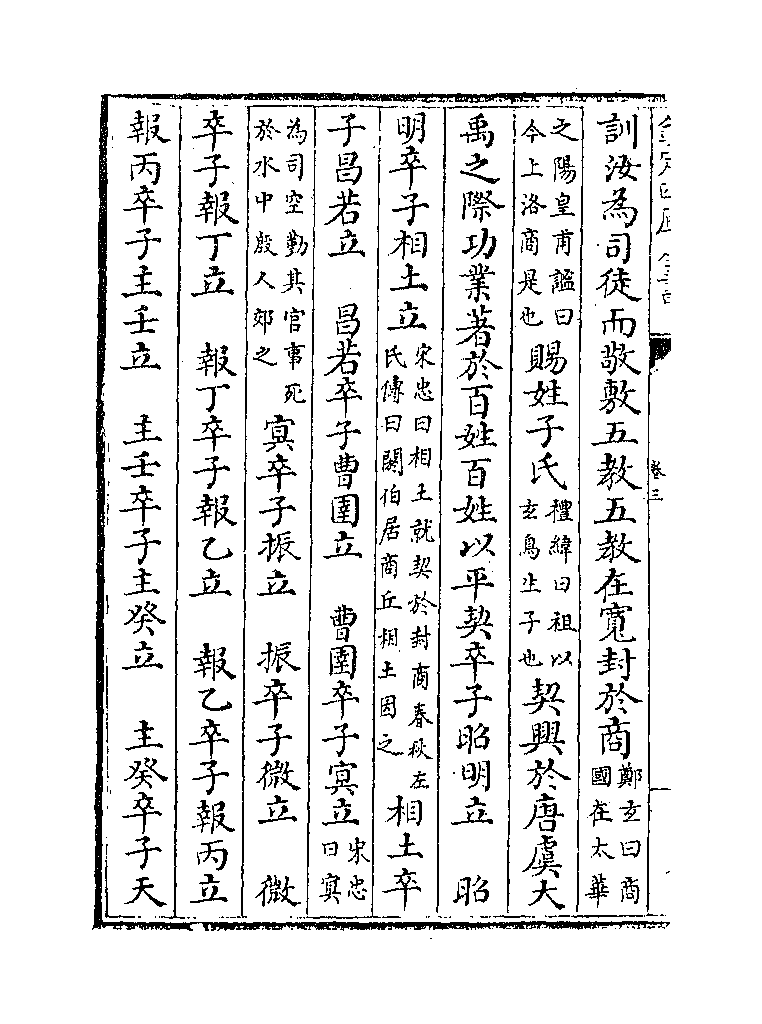 卷三
訓汝為司徒而敬敷五教五教在寬封於商鄭玄曰商國在太華
之陽皇甫謐曰今上洛商是也賜姓子氏禮緯曰祖以玄鳥生子也契興於唐虞大
禹之際功業著於百姓百姓以平契卒子昭明立　昭
明卒子相土立宋忠曰相土就契於封商春秋左氏傳曰閼伯居商丘相土因之相土卒
子昌若立　昌若卒子曹圉立　曹圉卒子冥立宋忠曰冥
為司空勤其官事死於水中殷人郊之冥卒子振立　振卒子微立　微
卒子報丁立　報丁卒子報乙立　報乙卒子報丙立
報丙卒子主壬立　主壬卒子主癸立　主癸卒子天